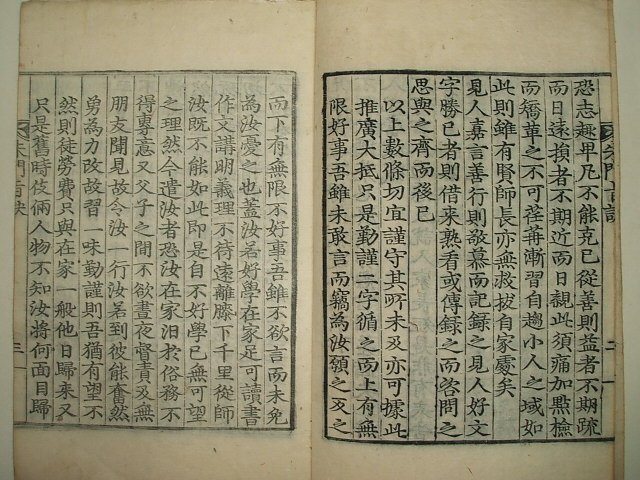 恐志趣卑凡不能克己從善則益者不期疏
而日遠損者不期近而日親此須痛加點檢
而矯革之不可荏苒漸習自趨小人之域如
此則雖有賢師長亦無救拔自家處矣
見人嘉言善行則敬慕而記録之見人好文
字勝己者則借來熟看或傳録之而咨問之
思與之齊而後已
以上數條切宜謹守其所未及亦可據此
推廣大抵只是勤謹二字循之而上有無
限好事吾雖未敢言而竊為汝願之反之
而下有無限不好事吾雖不欲言而未免
為汝憂之也蓋汝若好學在家足可讀書
作文講明義理不待遠離膝下千里從師
汝既不能如此即是自不好學已無可望
之理然今遣汝者恐汝在家汩於俗務不
得專意又父子之間不欲晝夜督責及無
朋友聞見故令汝一行汝若到彼能奮然
勇為力改故習一味勤謹則吾猶有望不
然則徒勞費只與在家一般他日歸來又
只是舊時伎倆人物不知汝將何面目歸
朱門旨訣
二
朱門旨訣
三